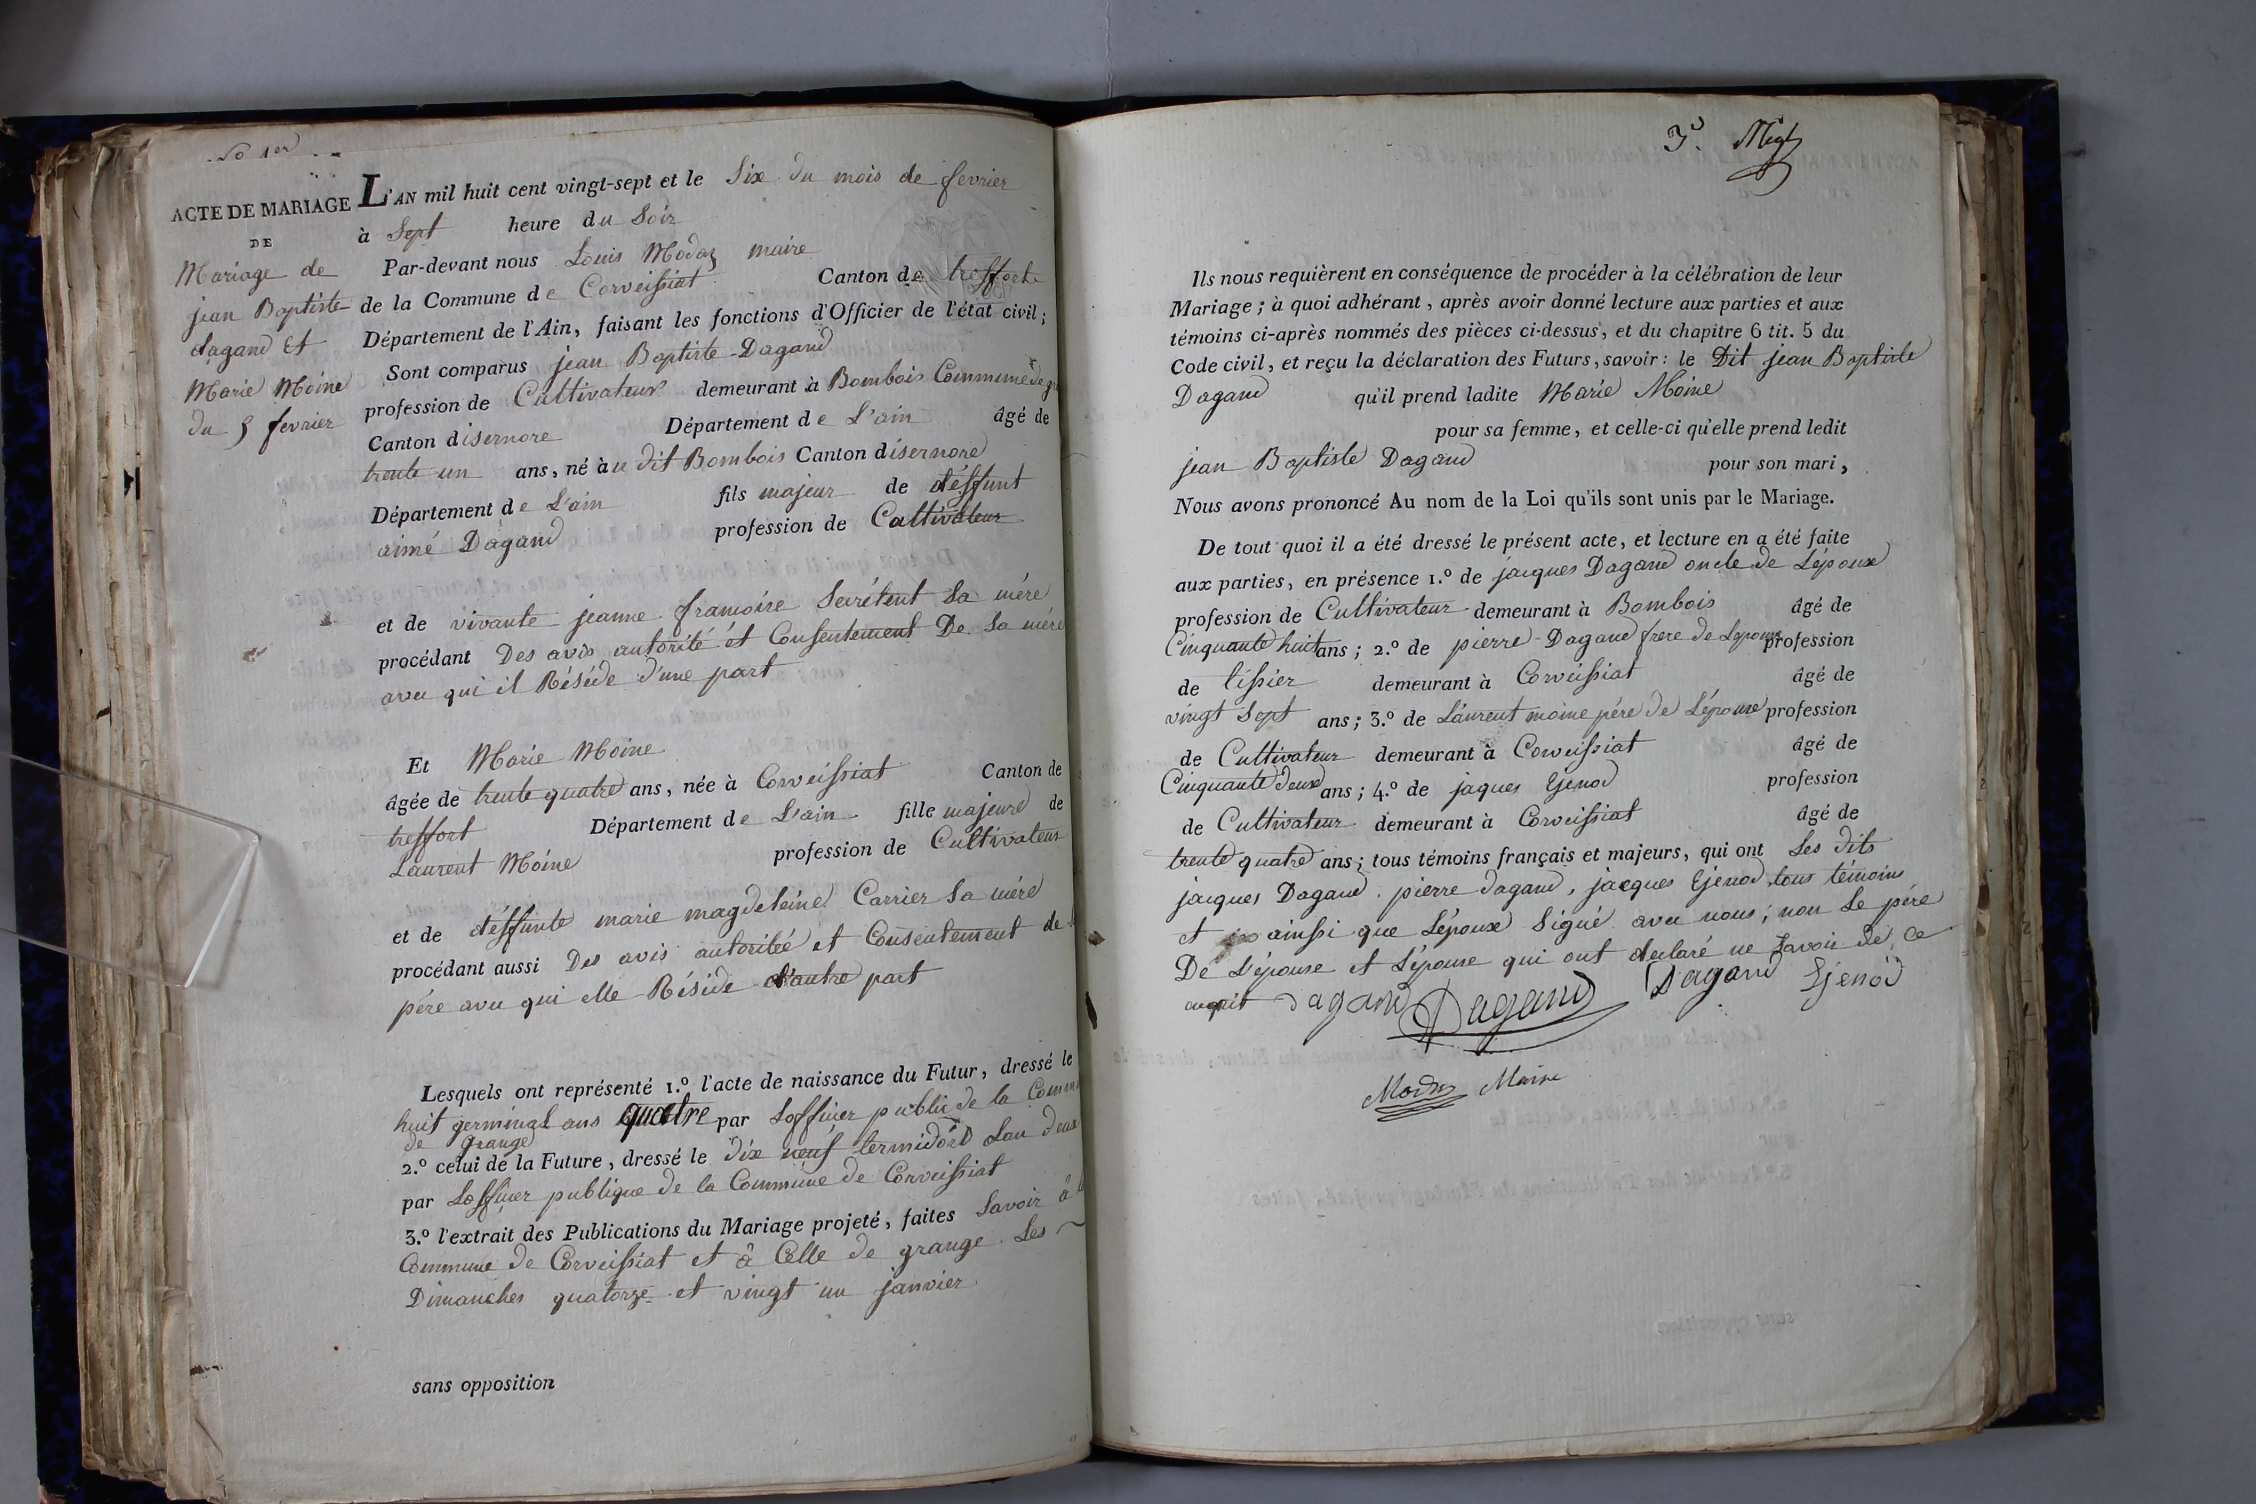 No 1er
ACTE DE MARIAGE
DE
Mariage de
jean Baptiste
dagand Et
Marie Moine
du 5 fevrier
L'AN mil huit cent vingt-sept et le Six du mois de fevrier
à Sept heure du Soir
Par-devant nous Louis Modas maire
de la Commune de Corveissiat Canton de treffort
Département de l'Ain, faisant les fonctions d'Officier de l'état civil;
Sont comparus jean Baptiste Dagand
profession de Cultivateur demeurant à Bombois Commune de
Canton disernore Département de L'ain âgé de
trente un ans, né àu dit Bombois Canton disernore
Département de L'ain fils majeur de déffunt
aimé Dagand profession de Cultivateur
et de vivante jeanne framoise Secrétent Sa mére
procédant Des avis autorité et Consentement De Sa mére
avec qui il Réside d'une part
Et Marie Moine
âgée de trente quatre ans, née à Corveissiat Canton de
treffort Département de L'ain fille majeure de
Laurent Moine profession de Cultivateur
et de déffunte marie magdeleine Carrier Sa mére
procédant aussi Des avis autorité et Consentement de
pére avec qui elle Réside d'autre part
Lesquels ont représenté 1.º l'acte de naissance du Futur, dressé le
huit germinal ans quatre par Loffiier public de la Commu
de grange
2.º celui de la Future, dressé le dix neuf termidort Lan deux
par Loffiier publique de la Commune de Corveissiat
3.º l'extrait des Publications du Mariage projeté, faites Savoir à
Commune de Corveissiat et à Celle de grange. Les
Dimanches quatorze et vingt un janvier
sans opposition
Ils nous requièrent en conséquence de procéder à la célébration de leur
Mariage; à quoi adhérant, après avoir donné lecture aux parties et aux
témoins ci-après nommés des pièces ci-dessus, et du chapitre 6 tit. 5 du
Code civil, et reçu la déclaration des Futurs, savoir: le Dit jean Baptiste
Dagand qu'il prend ladite Marie Moine
pour sa femme, et celle-ci qu'elle prend ledit
jean Baptiste Dagand pour son mari,
Nous avons prononcé Au nom de la Loi qu'ils sont unis par le Mariage.
De tout quoi il a été dressé le présent acte, et lecture en a été faite
aux parties, en présence 1.º de jacques Dagand oncle de L'époux
profession de Cultivateur demeurant à Bombois âgé de
Cinquante huit ans; 2.º de pierre Dagand frere de Lepoux profession
de tissier demeurant à Corveissiat âgé de
vingt Sept ans; 3.º de Laurent moine pére de L'épouse profession
de Cultivateur demeurant à Corveissiat âgé de
Cinquante Deux ans; 4.º de jaques Ejenod profession
de Cultivateur demeurant à Corveissiat âgé de
trente quatre ans; tous témoins français et majeurs, qui ont Les dits
jacques Dagand, pierre dagand, jacques Ejenod tous témoins
et ainssi que L'époux Signé avec nous; non Le pére
De L'épouse et L'épouse qui ont declaré ne Savoir de ce
enquit dagand Dagand Dagand Ejenod
Modas Maire